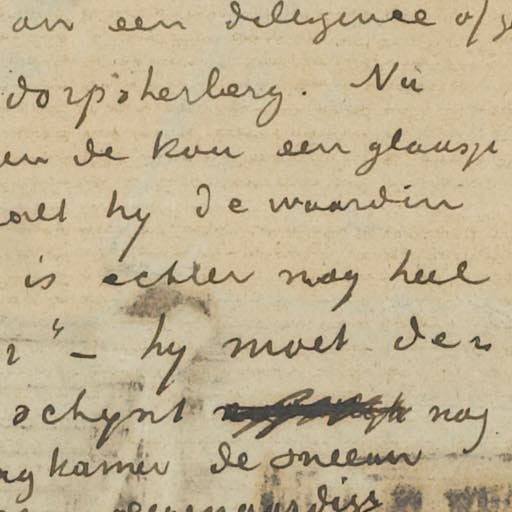 een diligence of
dorpsherberg. Nu
de kou een glaasje
hy de waardin
is echter nog heel
" – hy moet den
schynt nog
kamer de sneeuw